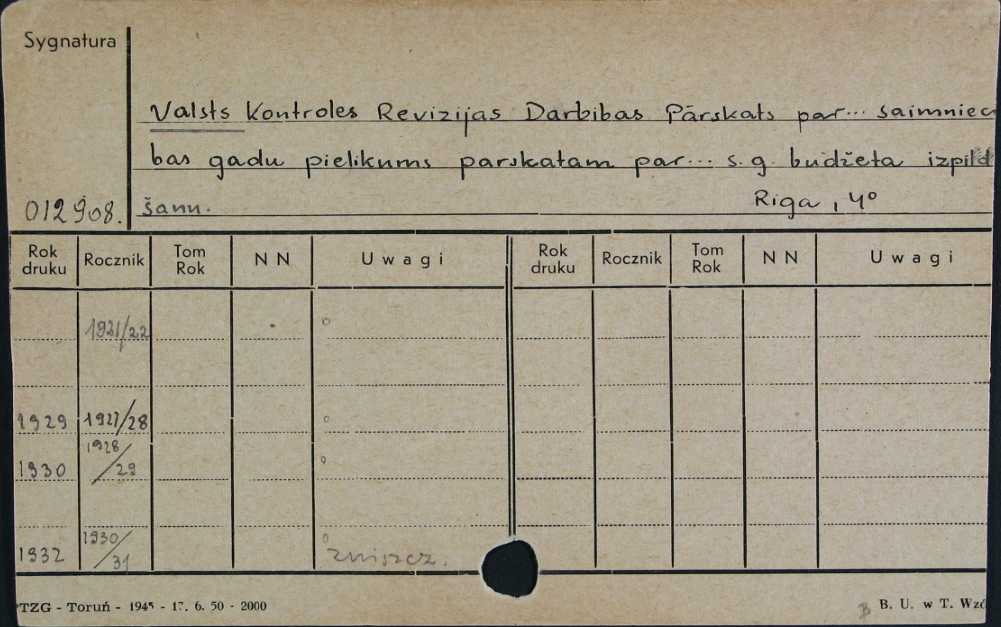 Sygnatura
Valsts Kontroles Revizijas Darbibas Pārskats par... saimniec
bas gadu pielikums parskatam par... s.g. budžeta izpild
012908. šanu. Riga, 4º
Rok druku Rocznik Tom Rok N N Uwagi Rok druku Rocznik Tom Rok N N Uwagi
1921/22 o
1929 1927/28 o
1930 1928/29 o
1932 1930/31 o zniszcz.
PTZG - Toruń - 1945 - 17. 6. 50 - 2000 B B. U. w T. Wzó